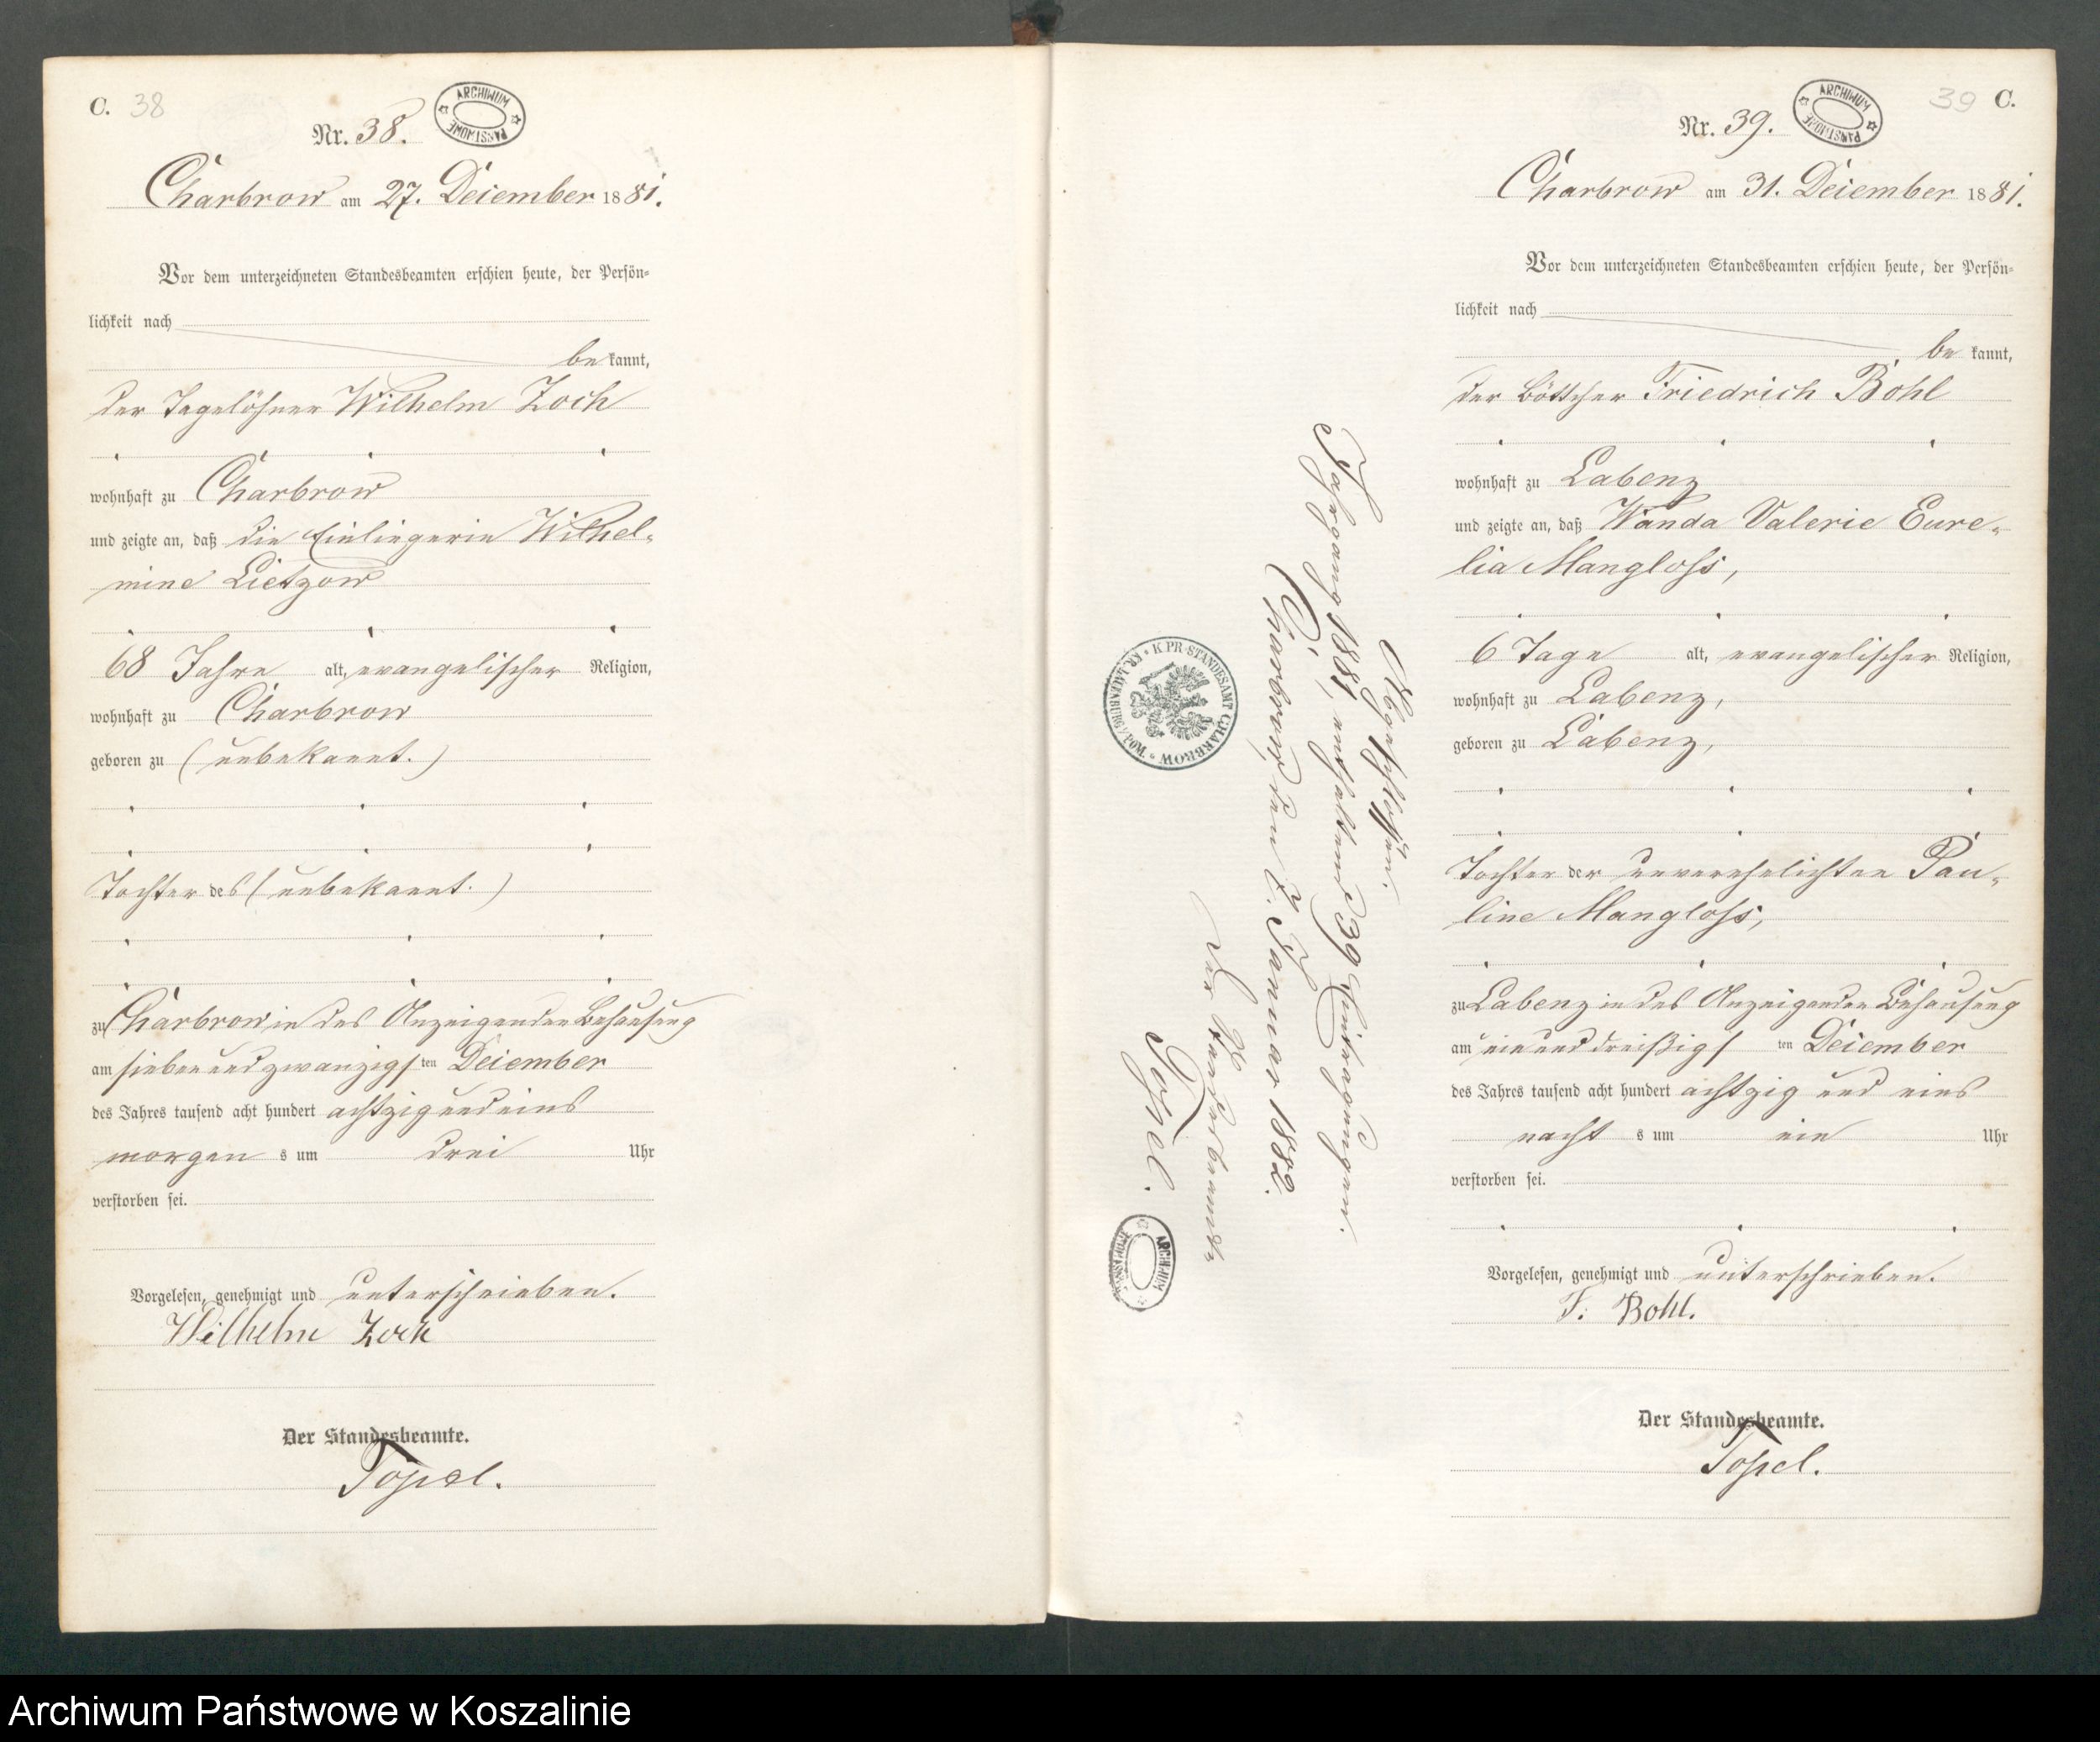 C. 38
Nr. 38.
ARCHIWUM PAŃSTWOWE
Charbrow am 27. December 1881.
Vor dem unterzeichneten Standesbeamten erschien heute, der Persön-
lichkeit nach
be kannt,
der Tagelöhner Wilhelm Zoch
wohnhaft zu Charbrow
und zeigte an, daß die Einliegerin Wilhel-
mine Lietzow
68 Jahre alt, evangelischer Religion,
wohnhaft zu Charbrow
geboren zu (unbekannt.)
Tochter des (unbekannt.)
zu Charbrow in des Anzeigenden Behausung
am sieben und zwanzigsten December
des Jahres tausend acht hundert achtzig und eins
morgens um drei Uhr
verstorben sei.
Vorgelesen, genehmigt und unterschrieben.
Wilhelm Zock
Der Standesbeamte.
Topel.
39 C.
Nr. 39.
ARCHIWUM PAŃSTWOWE
Charbrow am 31. December 1881.
Vor dem unterzeichneten Standesbeamten erschien heute, der Persön-
lichkeit nach
be kannt,
der Böttcher Friedrich Bohl
wohnhaft zu Labenz
und zeigte an, daß Wanda Valerie Eure-
lia Mangloss,
6 Tage alt, evangelischer Religion,
wohnhaft zu Labenz,
geboren zu Labenz,
Tochter der unverehelichten Pau-
line Mangloss,
zu Labenz in des Anzeigenden Behausung
am ein und dreißigsten December
des Jahres tausend acht hundert achtzig und eins
nachts um ein Uhr
verstorben sei.
Vorgelesen, genehmigt und unterschrieben.
F. Bohl.
Der Standesbeamte.
Topel.
Abgeschlossen.
Jahrgang 1881, enthaltend 39 Eintragungen.
Charbrow, den 2. Januar 1882.
Der Standesbeamte
Topel.
K PR. STANDESAMT CHARBROW KR. LAUENBURG i/POM.
ARCHIWUM PAŃSTWOWE
Archiwum Państwowe w Koszalinie